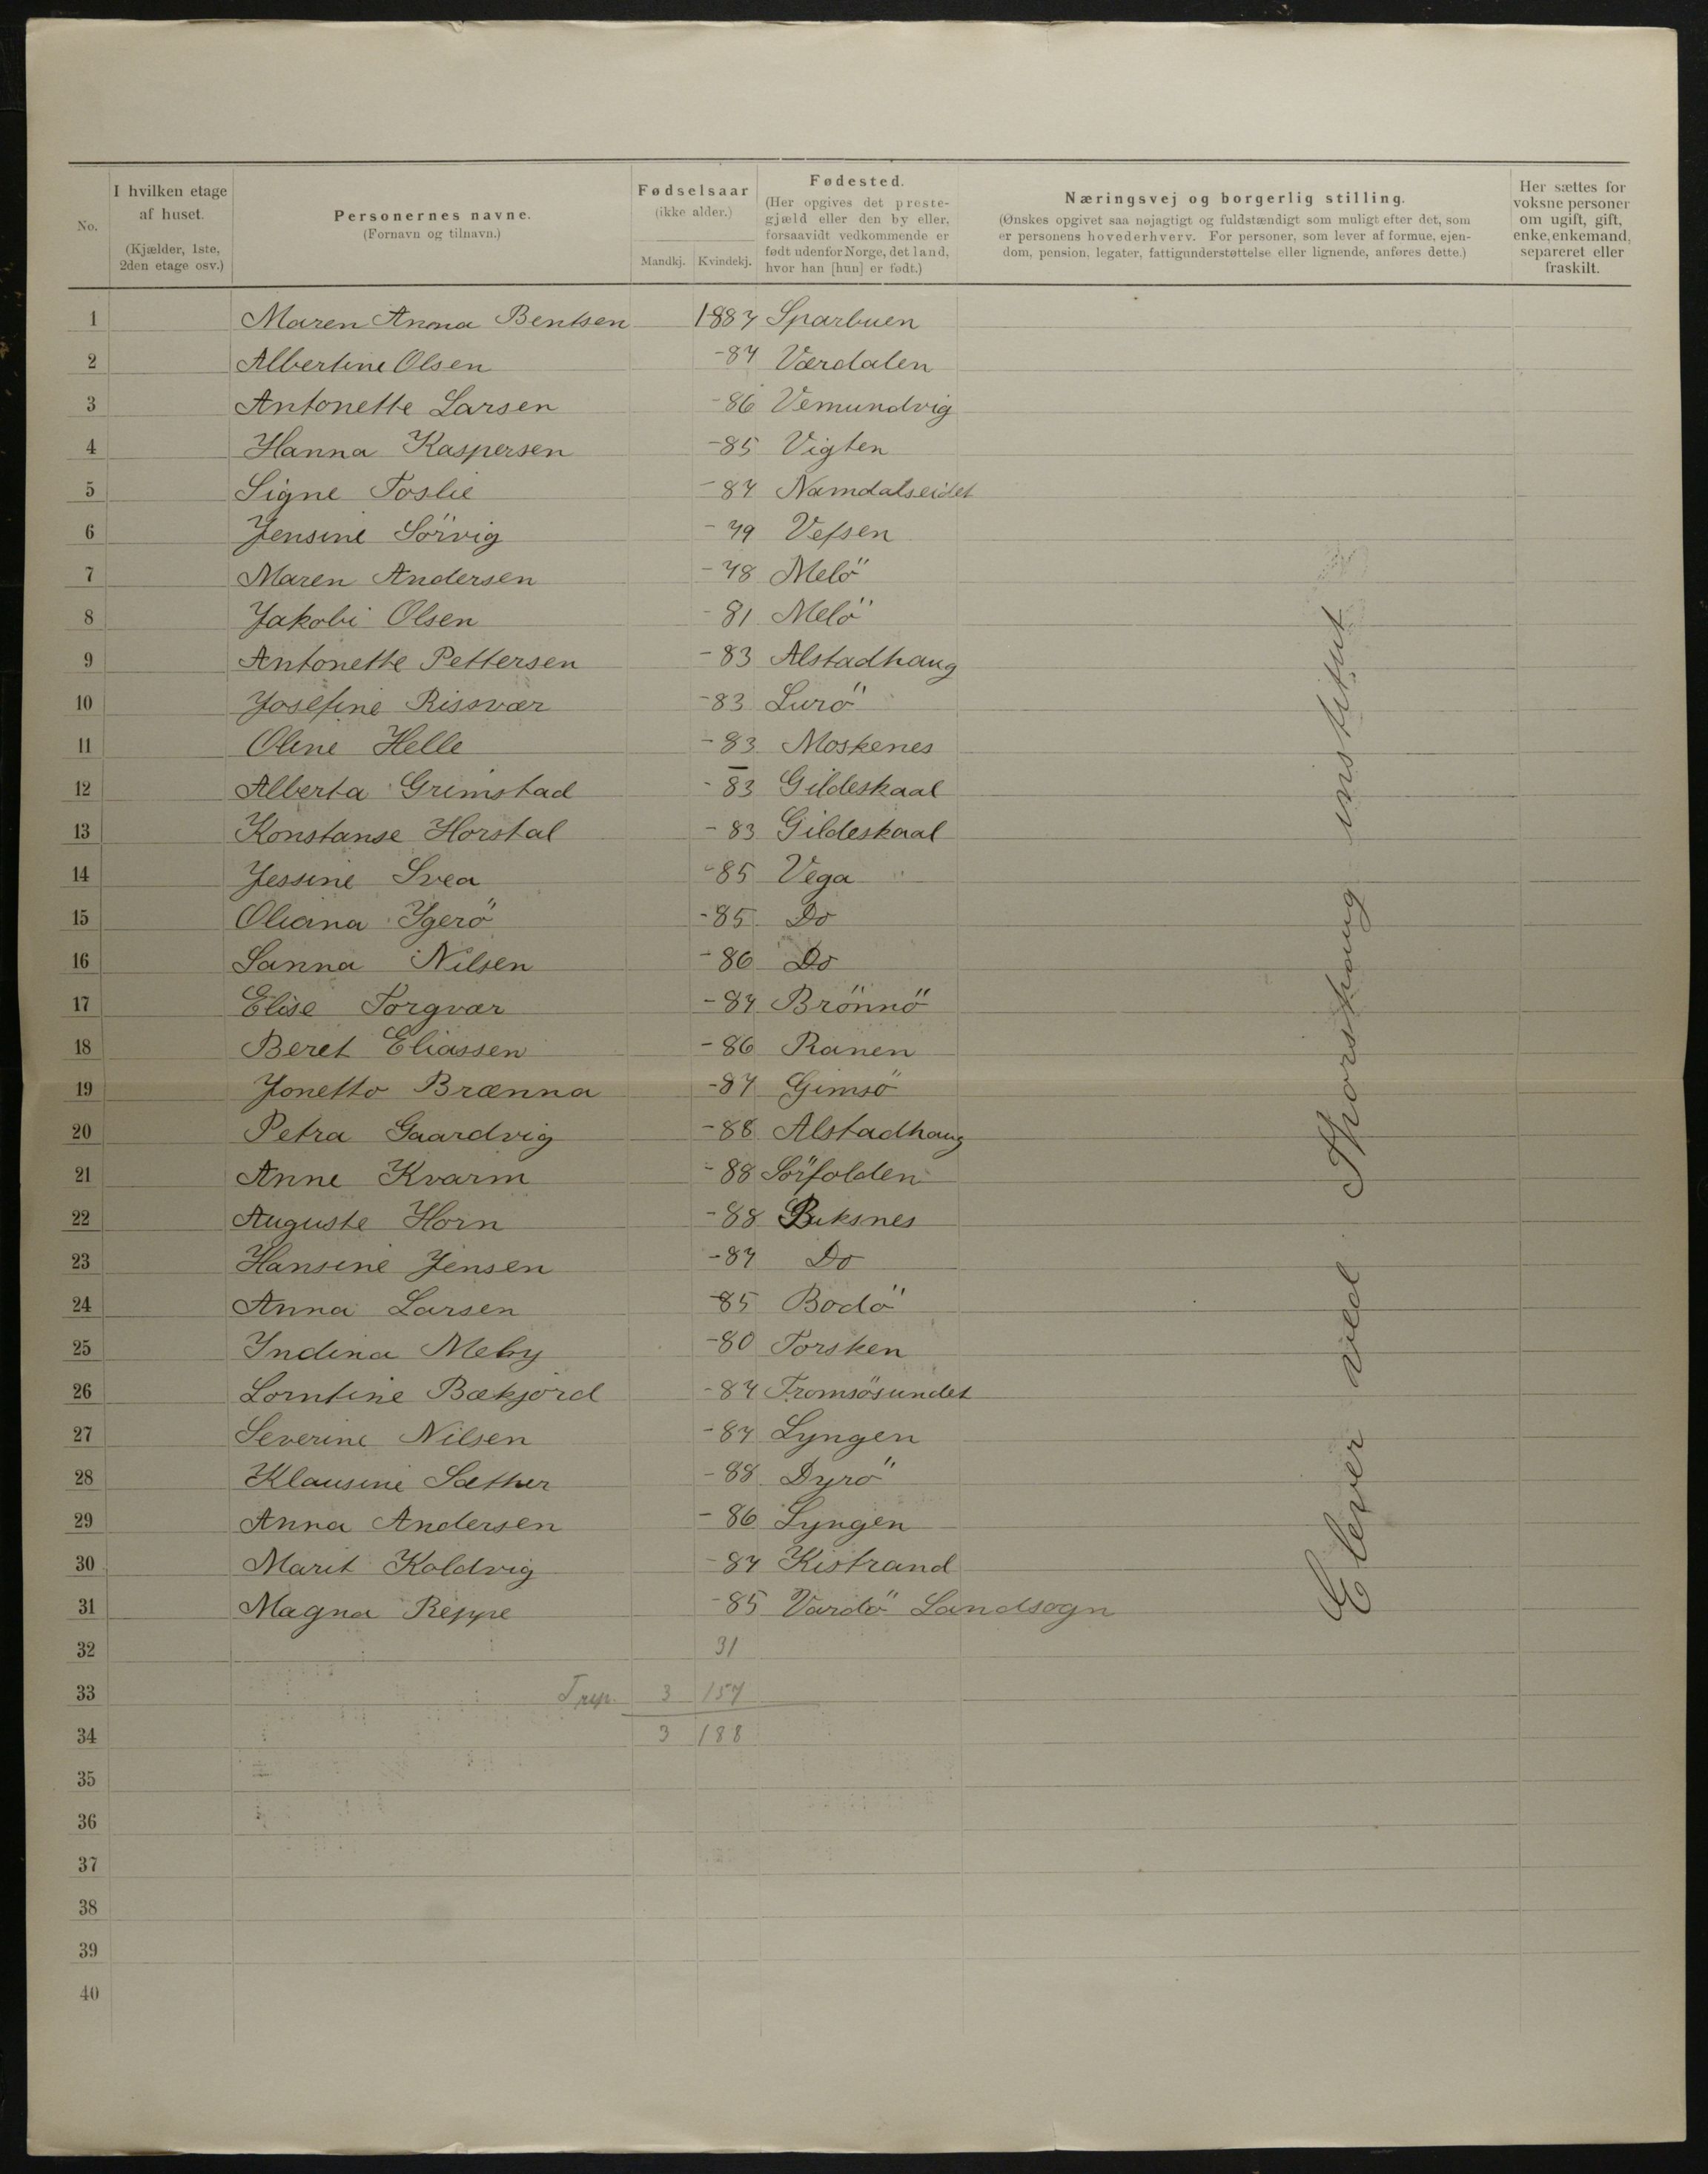 No.
I hvilken etage af huset.
(Kjælder, 1ste, 2den etage osv.)
Personernes navne.
(Fornavn og tilnavn.)
Fødselsaar
(ikke alder.)
Mandkj. Kvindekj.
Fødested.
(Her opgives det prestegjæld eller den by eller, forsaavidt vedkommende er født udenfor Norge, det land, hvor han [hun] er født.)
Næringsvej og borgerlig stilling.
(Ønskes opgivet saa nøjagtigt og fuldstændigt som muligt efter det, som er personens hovederhverv. For personer, som lever af formue, ejendom, pension, legater, fattigunderstøttelse eller lignende, anføres dette.)
Her sættes for voksne personer om ugift, gift, enke, enkemand, separeret eller fraskilt.
1 Maren Anna Bentsen 1887 Sparbuen
2 Albertine Olsen -87 Værdalen
3 Antonette Larsen -86 Vemundvig
4 Hanna Kaspersen -85 Vigten
5 Signe Toslie -87 Namdalseidet
6 Jensine Sörvig -79 Vefsen
7 Maren Andersen -78 Melö
8 Jakobi Olsen -81 Melö
9 Antonette Pettersen -83 Alstadhaug
10 Josefine Rissvær -83 Lurö
11 Oline Helle -83 Moskenes
12 Alberta Grimstad -83 Gildeskaal
13 Konstanse Horstal -83 Gildeskaal
14 Jessine Svea -85 Vega
15 Oliana Ygerö -85 Do
16 Sanna Nilsen -86 Do
17 Elise Torgvær -87 Brönnö
18 Beret Eliassen -86 Ranen
19 Jonetto Brænna -87 Gimsö
20 Petra Gaardvig -88 Alstadhaug
21 Anne Kvarm -88 Sörfolden
22 Auguste Horn -88 Buksnes
23 Hansine Jensen -87 Do
24 Anna Larsen -85 Bodö
25 Indina Meby -80 Torsken
26 Lorntine Bækjord -87 Tromsösundet
27 Severine Nilsen -87 Lyngen
28 Klausine Sæther -88 Dyrö
29 Anna Andersen -86 Lyngen
30 Marit Koldvig -87 Kistrand
31 Magna Reppe -85 Vardö Landsogn
32 31
33 3 157
34 3 188
35
36
37
38
39
40
Elever ved Thorshaug institut